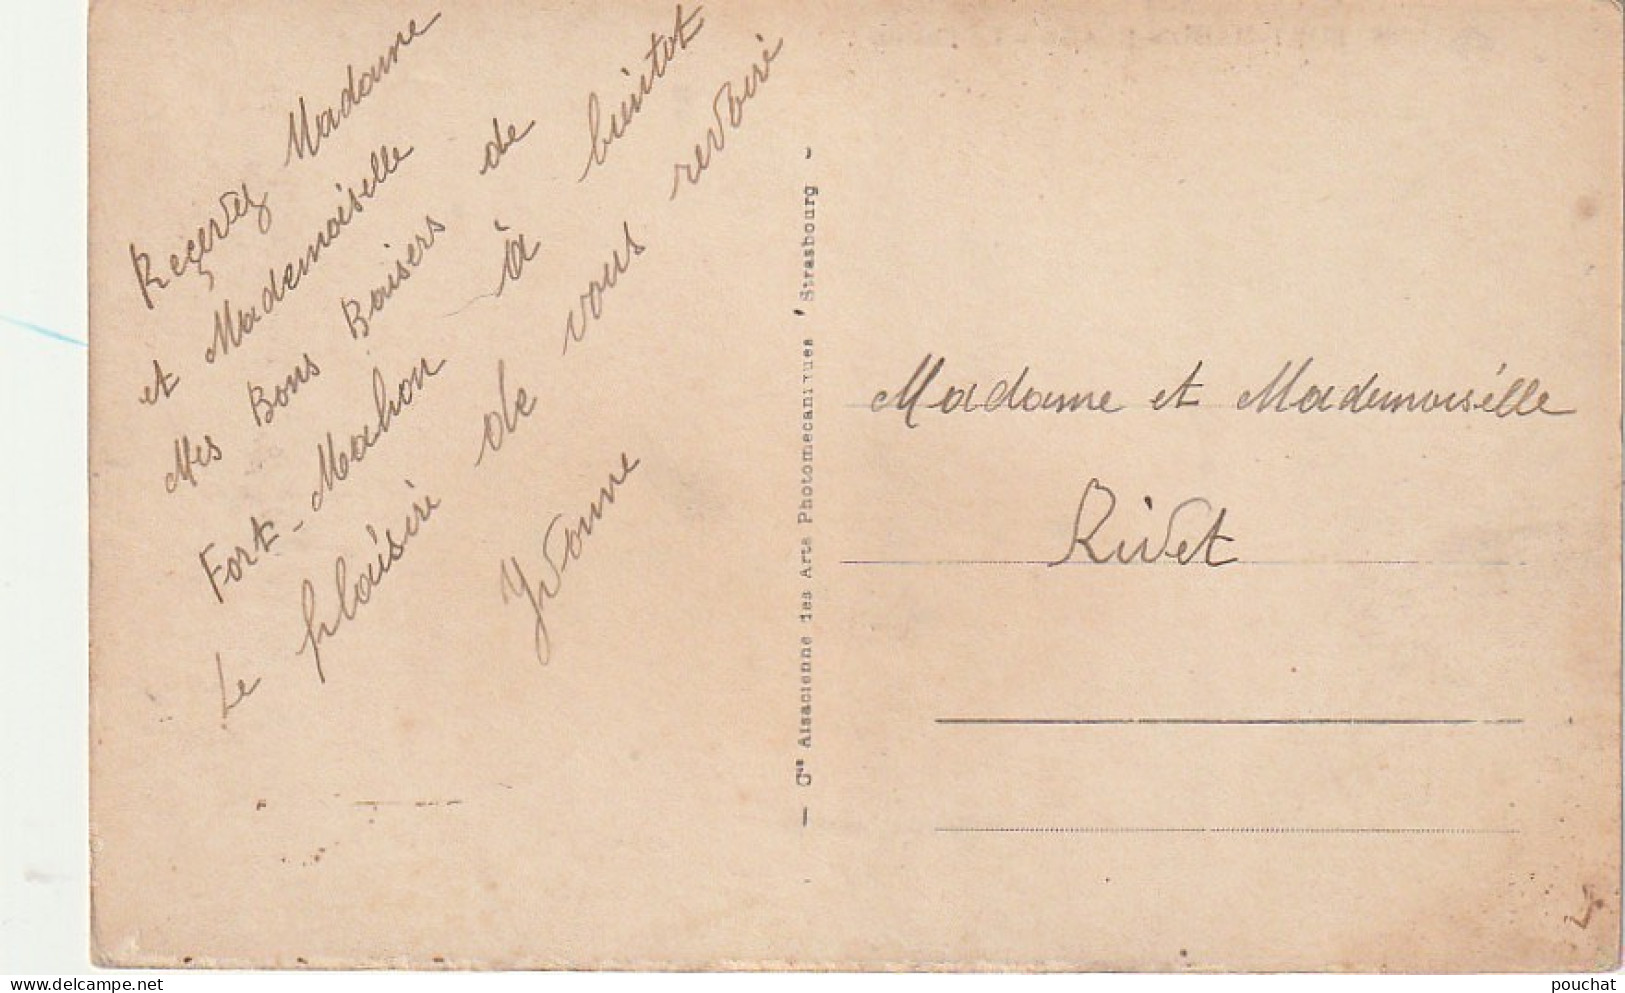 Reçervez Madame
et Mademoiselle
Mes Bons Baisers de
Fort-Mahon à bientot
Le plaisire de vous revoire
Yvonne
— Cie Alsacienne des Arts Photomecaniques Strasbourg -
Madame et Mademoisélle
Rivet
delcampe.net
pouchat